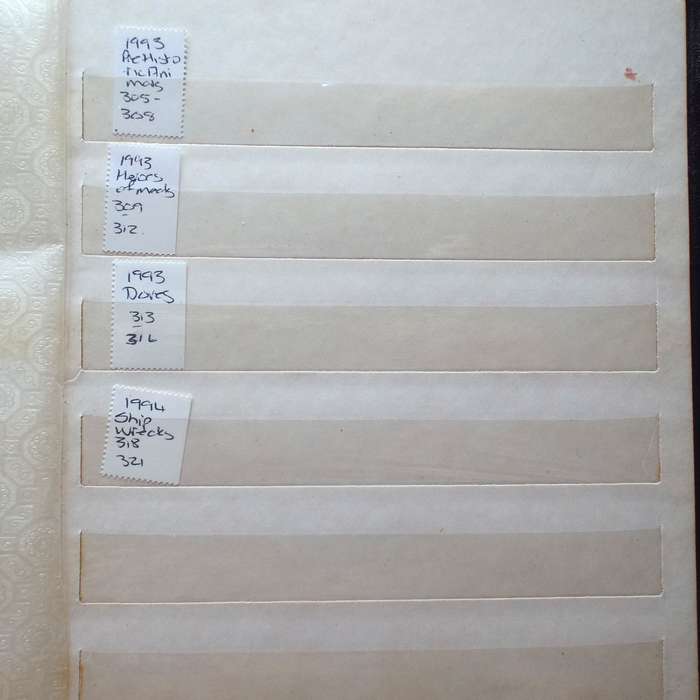 1993
PreHisto
ric Ani
mals
305-
308
1993
of Meeds
309
-
312.
1993
Doves
313
-
316
1994
Ship
Wrecks
318
321